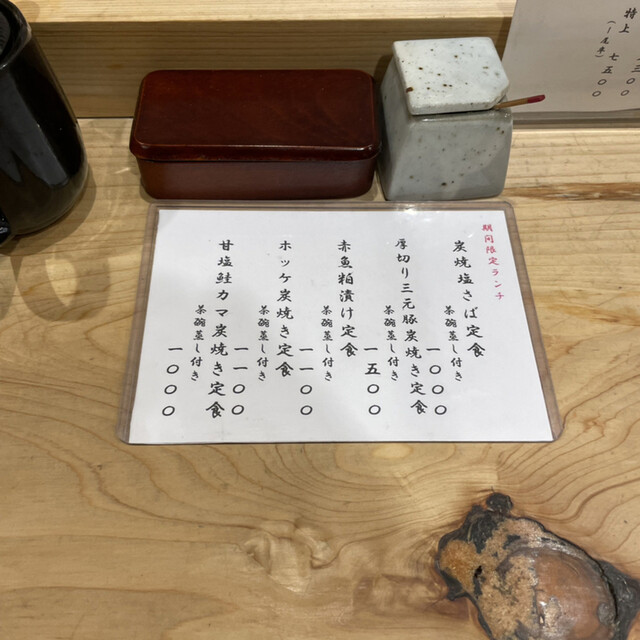 期間限定ランチ
炭焼塩さば定食
茶碗蒸し付き
一〇〇〇
厚切り三元豚炭焼き定食
茶碗蒸し付き
一五〇〇
赤魚粕漬け定食
茶碗蒸し付き
一一〇〇
ホッケ炭焼き定食
茶碗蒸し付き
一一〇〇
甘塩鮭カマ炭焼き定食
茶碗蒸し付き
一〇〇〇
特上
七五〇〇